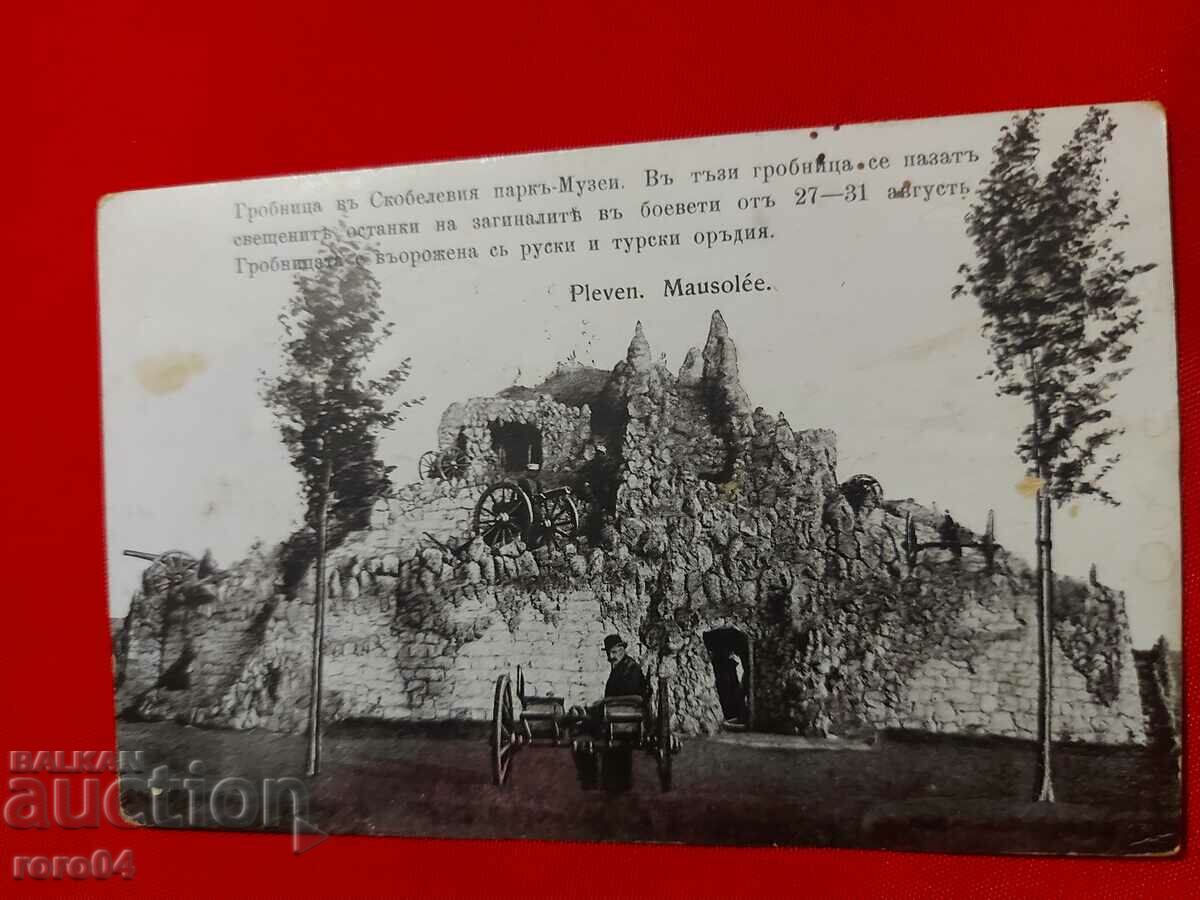 Гробница въ Скобелевия паркъ-Музеи. Въ тъзи гробница се пазатъ
свещенитѣ останки на загиналитѣ въ боевети отъ 27—31 августъ
Гробницата е въорожена съ руски и турски орѫдия.
Pleven. Mausolée.
BALKAN
auction
roro04